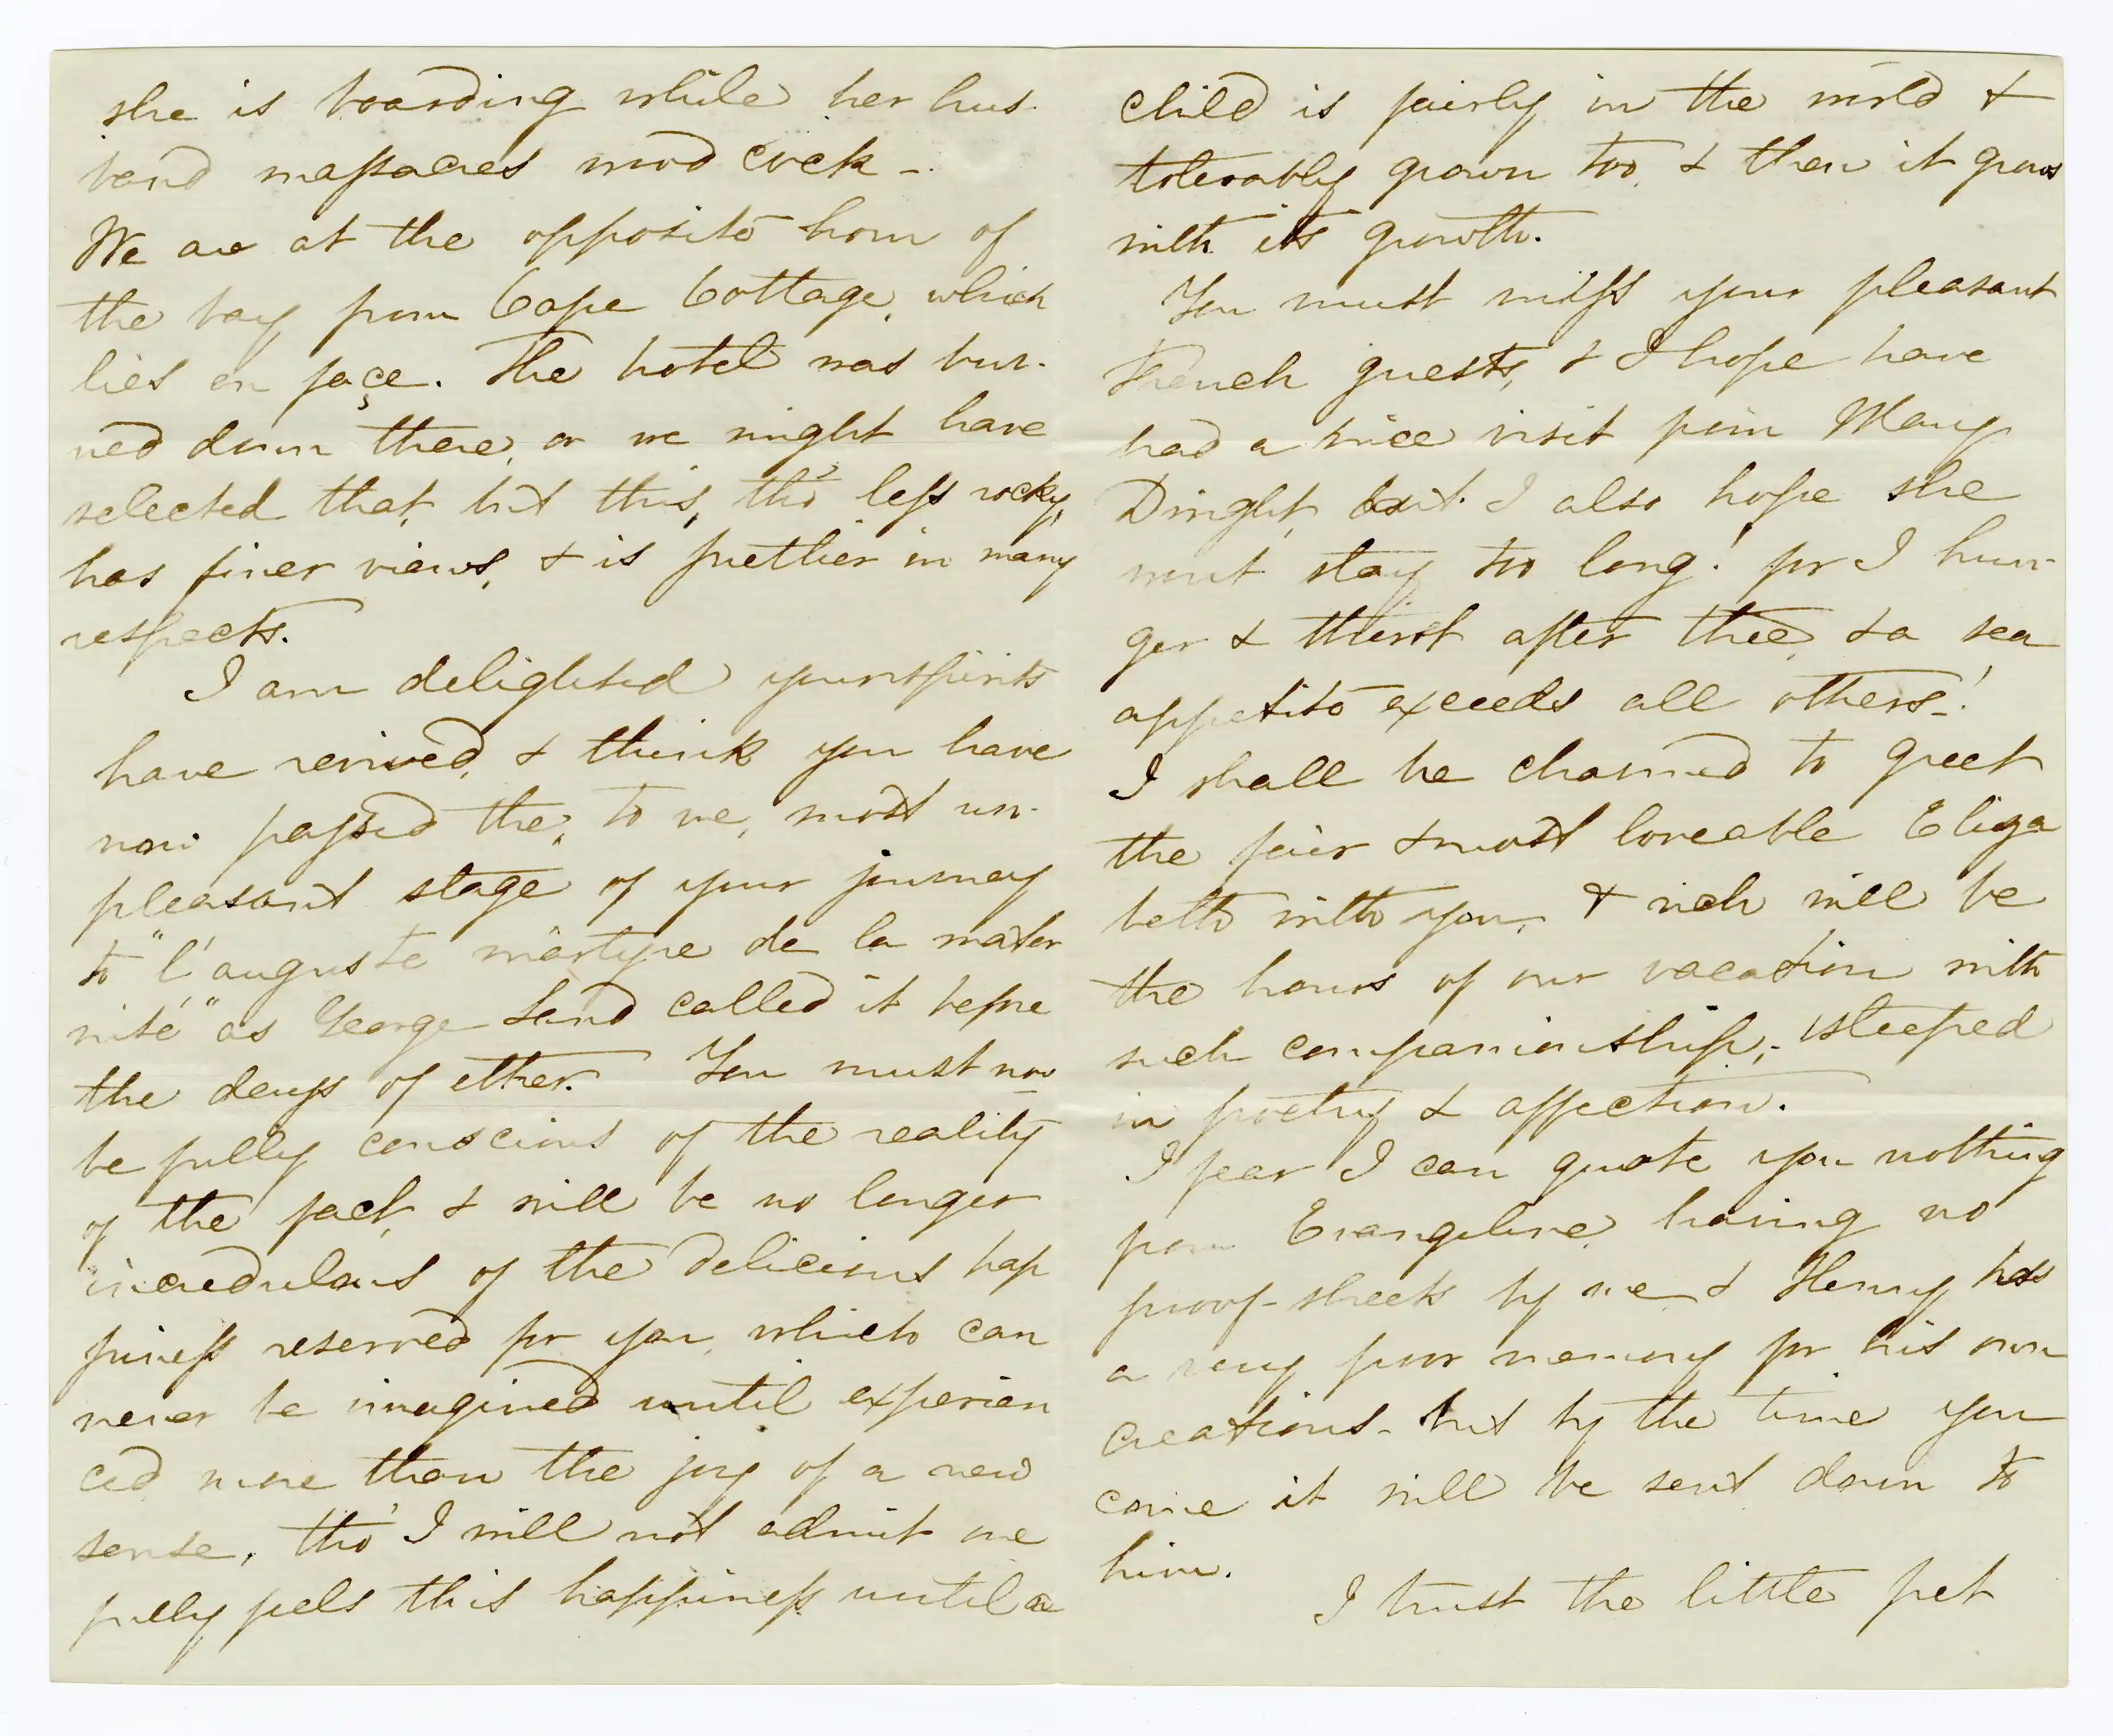 she is boarding while her hus-
band massacres wood cock -
We are at the opposite horn of
the bay from Cape Cottage, which
lies en façe. The hotel was bur-
ned down there, or we might have
selected that, but this, tho' less rocky,
has finer views, & is prettier in many
respects.
I am delighted your spirits
have revived, & think you have
now passed the, to me, most un-
pleasant stage of your journey
to "l'auguste martyre de la mater
nité" as George Sand called it before
the days of ether. You must now
be fully conscious of the reality
of the fact, & will be no longer
incredulous of the delicious hap
piness reserved for you, which can
never be imagined until experien
ced more than the joy of a new
sense, tho' I will not admit one
fully feels this happiness until a
child is fairly in the world &
tolerably grown too, & then it grows
with its growth.
You must miss your pleasant
French guests, & I hope have
had a nice visit from Mary
Dwight, but I also hope she
wont stay too long! for I hun-
ger & thirst after thee, & a sea
appetite exceeds all others!
I shall be charmed to greet
the fair & most loveable Eliza
beth with you, & rich will be
the hours of our vacation with
such companionship, - steeped
in poetry & affection.
I fear I can quote you nothing
from Evangeline, having no
proof-sheets by me & Henry has
a very poor memory for his own
creations - but by the time you
come it will be sent down to
him.
I trust the little pet